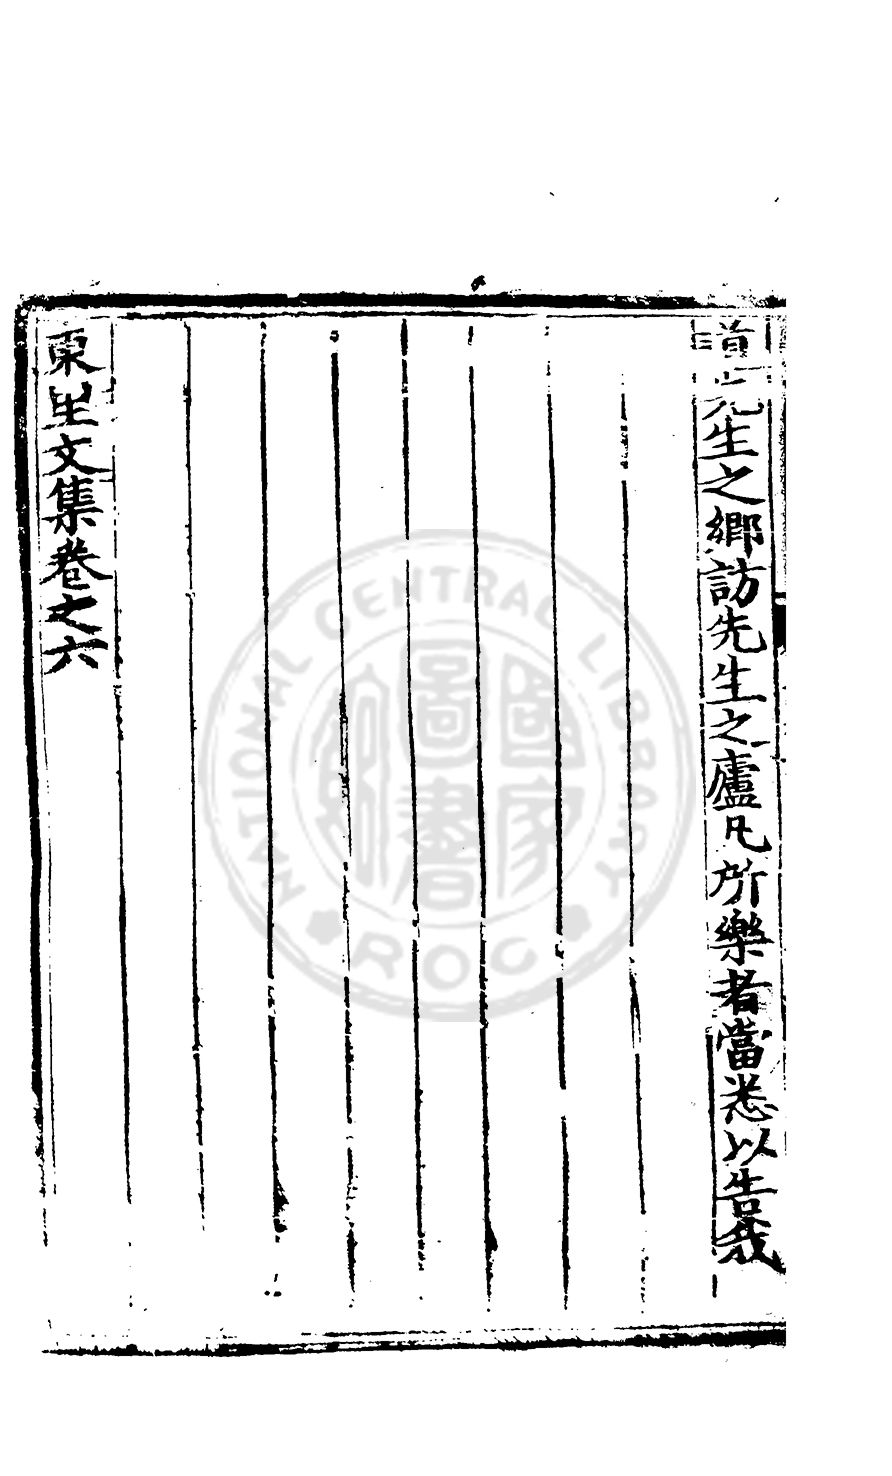 道先生之鄉訪先生之廬凡所樂者當悉以告我
東里文集卷之六
NATIONAL CENTRAL LIBRARY
ROC
國家圖書館